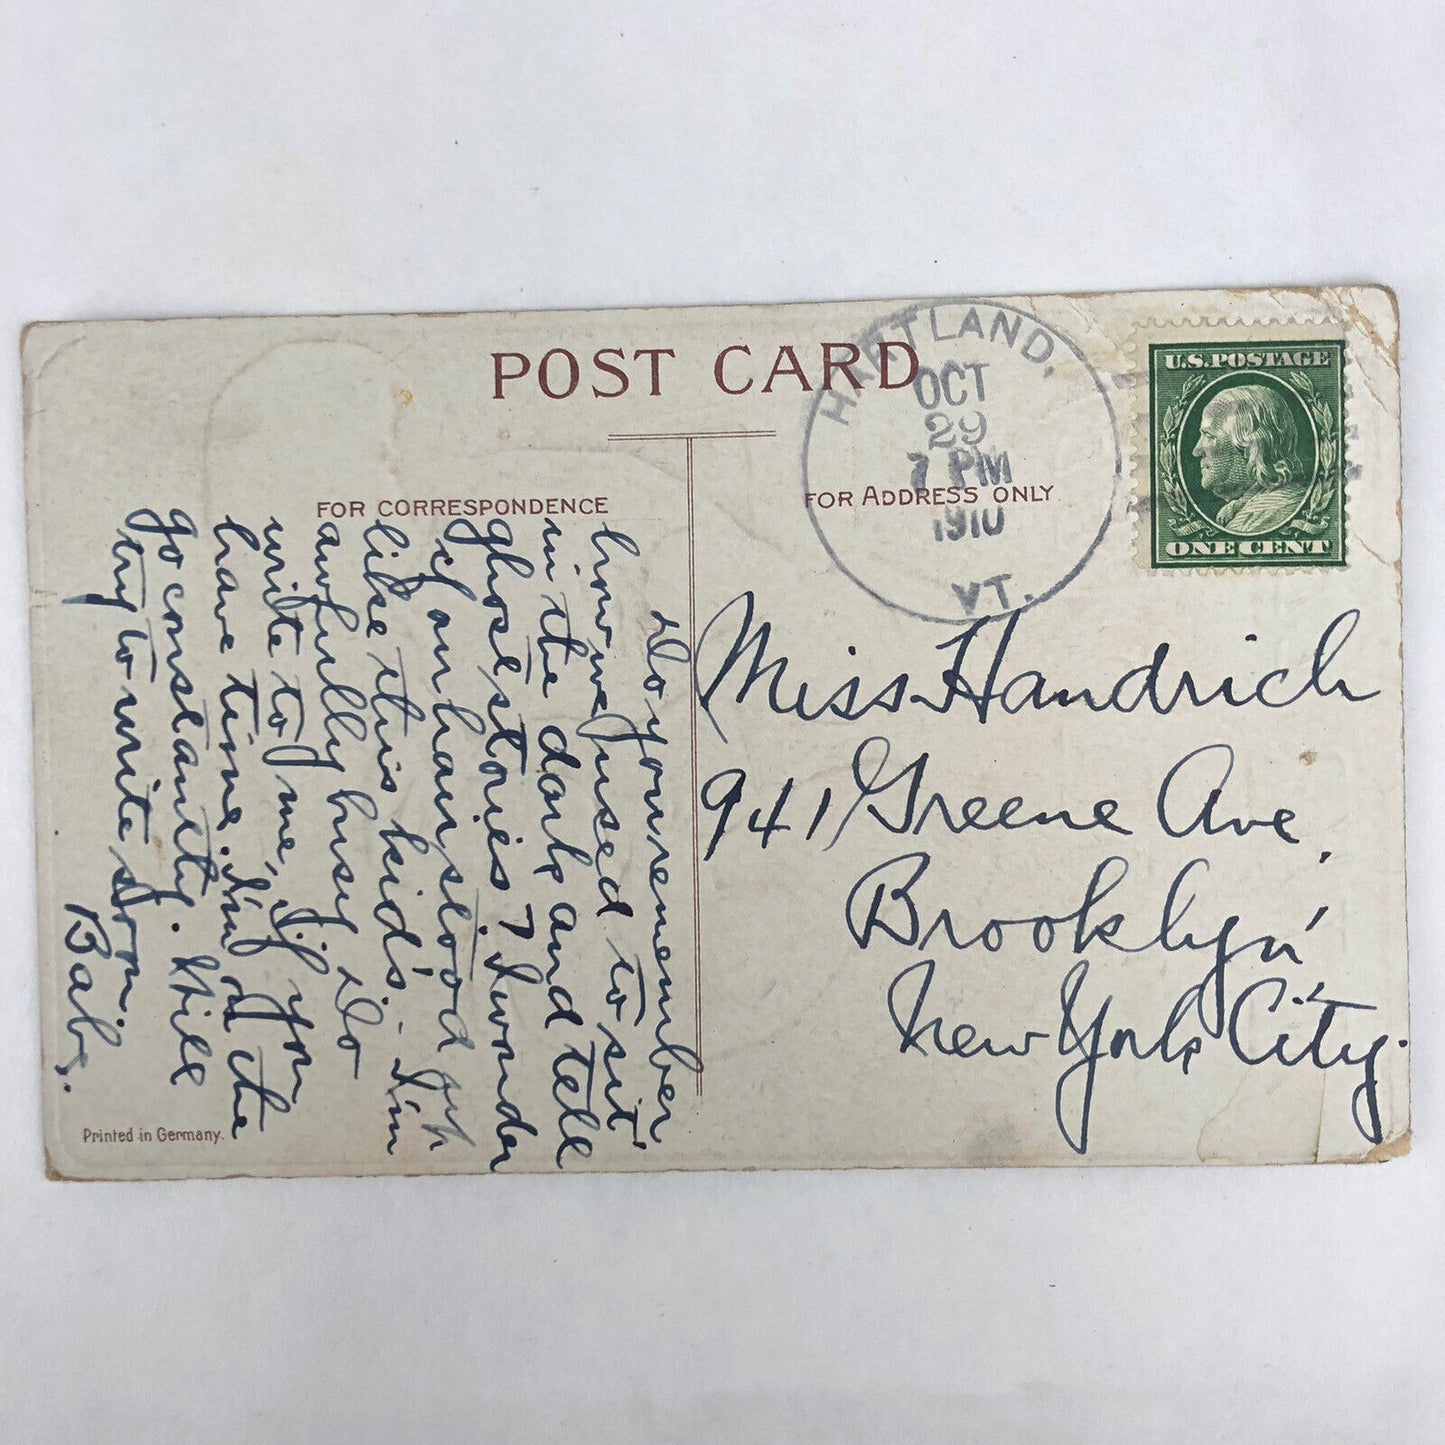 POST CARD
FOR CORRESPONDENCE
FOR ADDRESS ONLY
HARTLAND,
OCT
29
7 PM
1910
VT.
U.S. POSTAGE
ONE CENT
Do you remember
how we used to sit
in the dark and tell
ghost stories? I wonder
if our hair stood up
like this kid's. I'm
awfully busy. Do
write to me, if you
have time. I'm on the
go constantly. Will
try to write soon.
Babs.
Miss Handrich
941 Greene Ave,
Brooklyn,
New York City.
Printed in Germany.